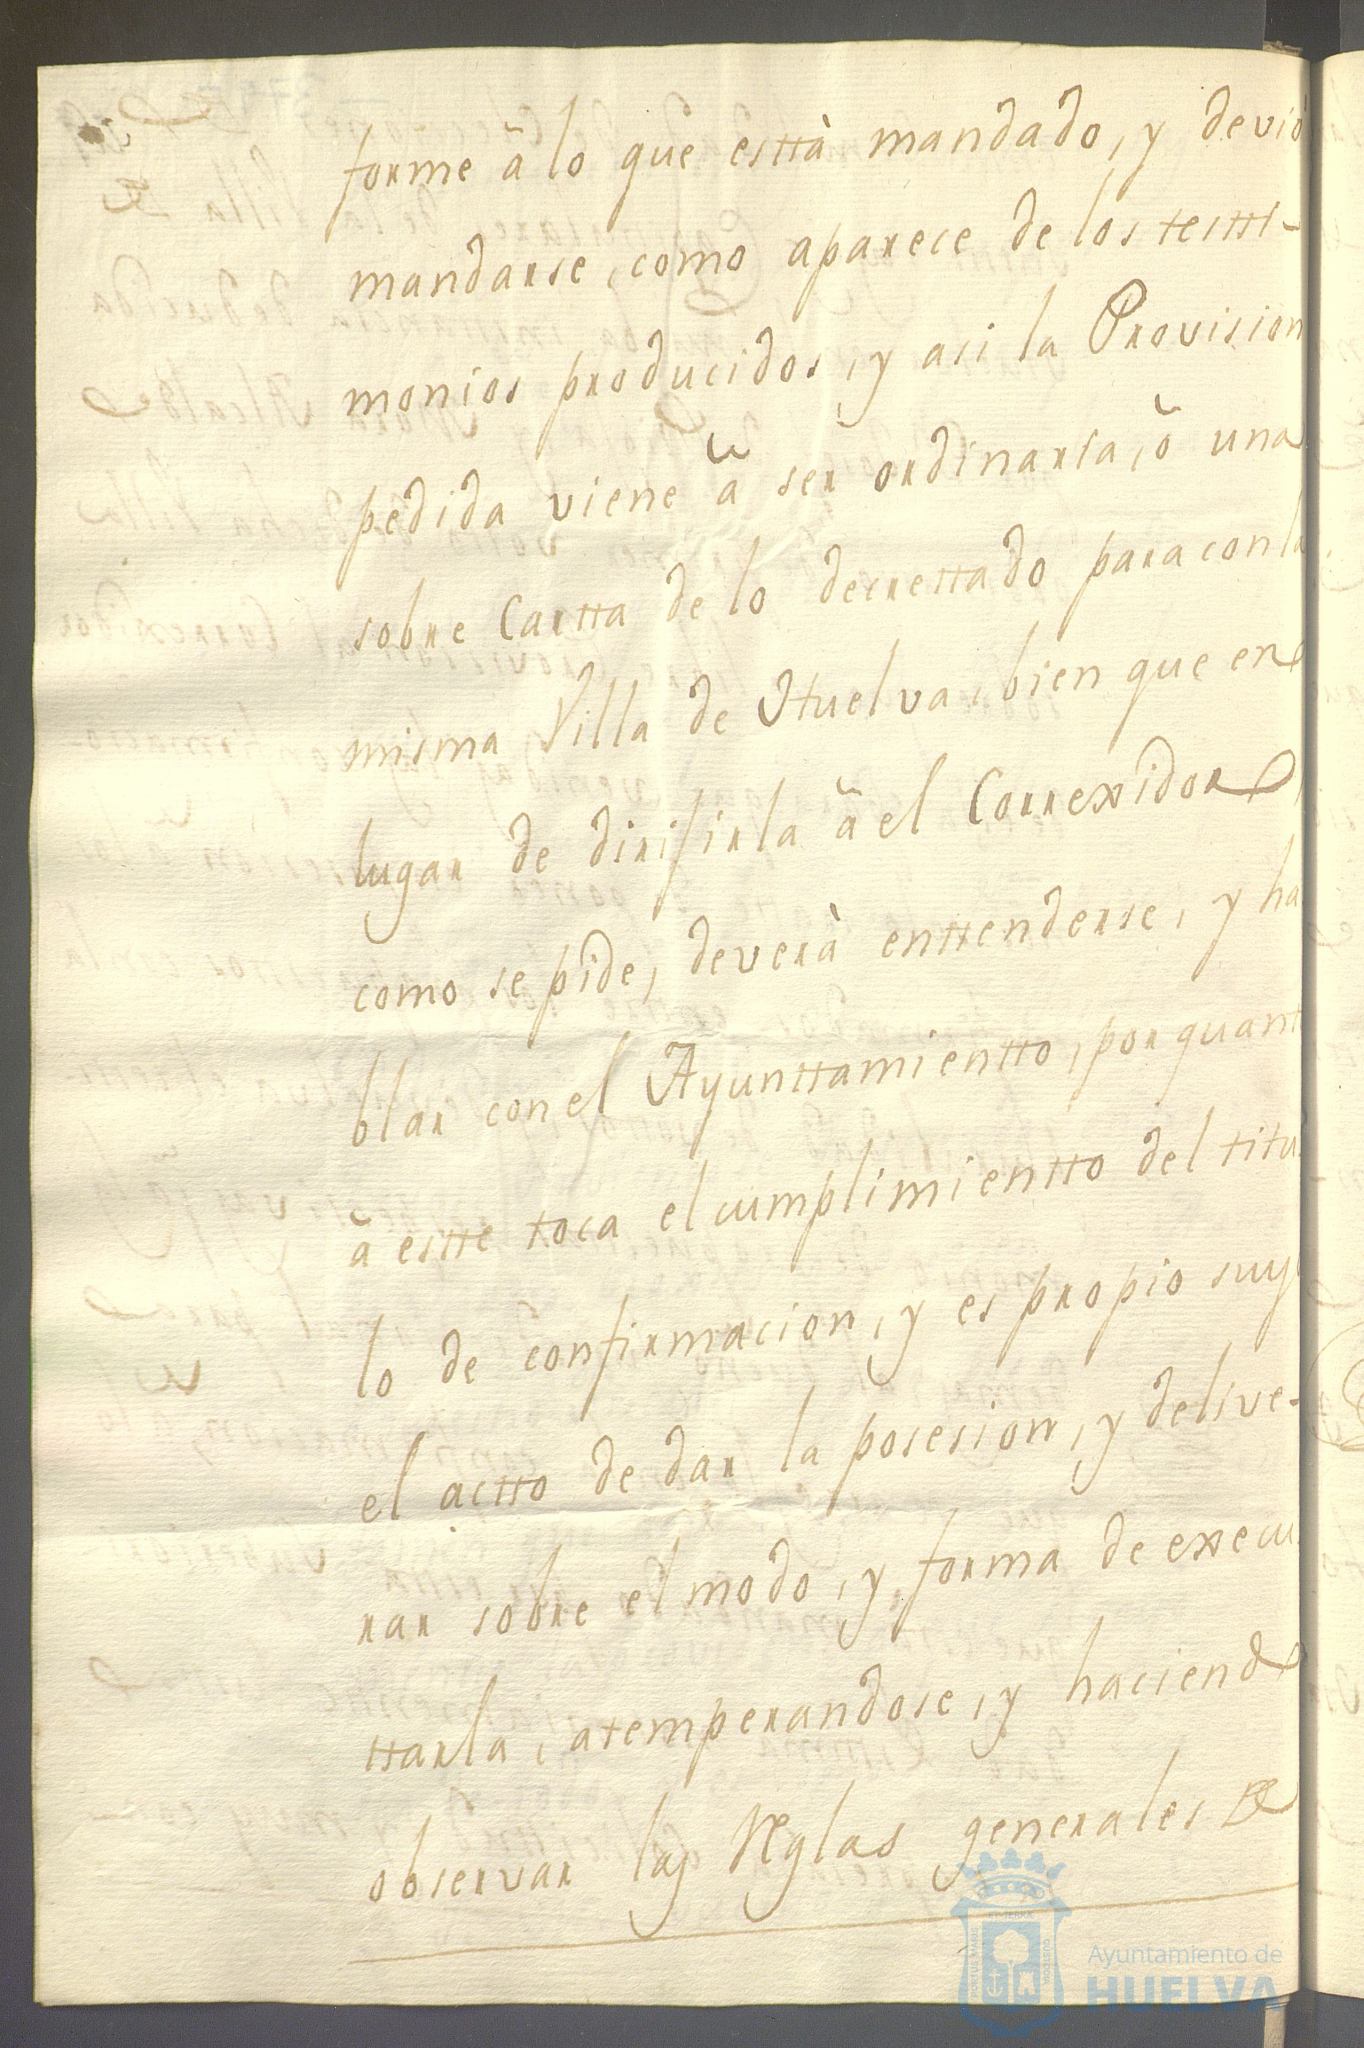 forme â lo que esttà mandado, y devio
mandarse, como aparece de los testti-
monios producidos, y asi la Provision
pedida viene â ser ordinaria, ô una
sobre Cartta de lo decrettado para con la
misma Villa de Huelva, bien que en
lugar de dirijirla â el Correxidor
como se pide, deverà enttenderse, y ha
blar con el Ayunttamientto, por quant
â estte toca el cumplimientto del titu
lo de confirmacion, y es propio suyo
el actto de dar la posesion, y delive-
rar sobre el modo, y forma de execu
ttarla, atemperandose, y haciendo
observar las Reglas generales de
Ayuntamiento de
HUELVA